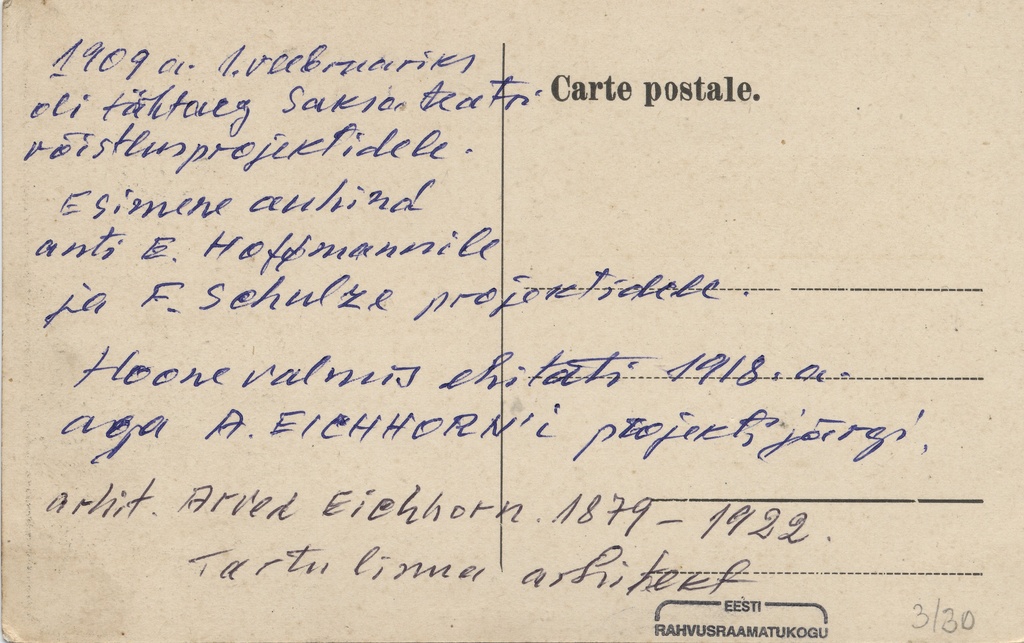 1909 a. 1. veebruariks
oli tähtaeg Saksa teatri
võistlusprojektidele.
Esimene auhind
anti E. Hoffmannile
ja F. Schulze projektidele.
Hoone valmis ehitati 1918. a.
aga A. EICHHORN'i projekti järgi.
arhit. Arved Eichhorn. 1879 - 1922.
Tartu linna arhitekt
Carte postale.
EESTI
RAHVUSRAAMATUKOGU
3/30